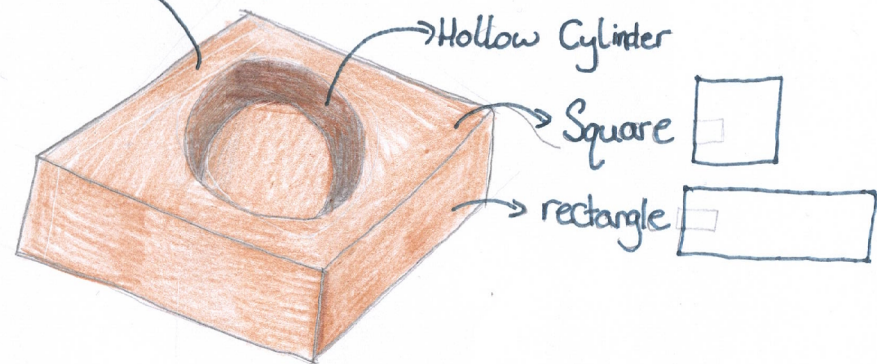 Hollow Cylinder
Square
rectangle